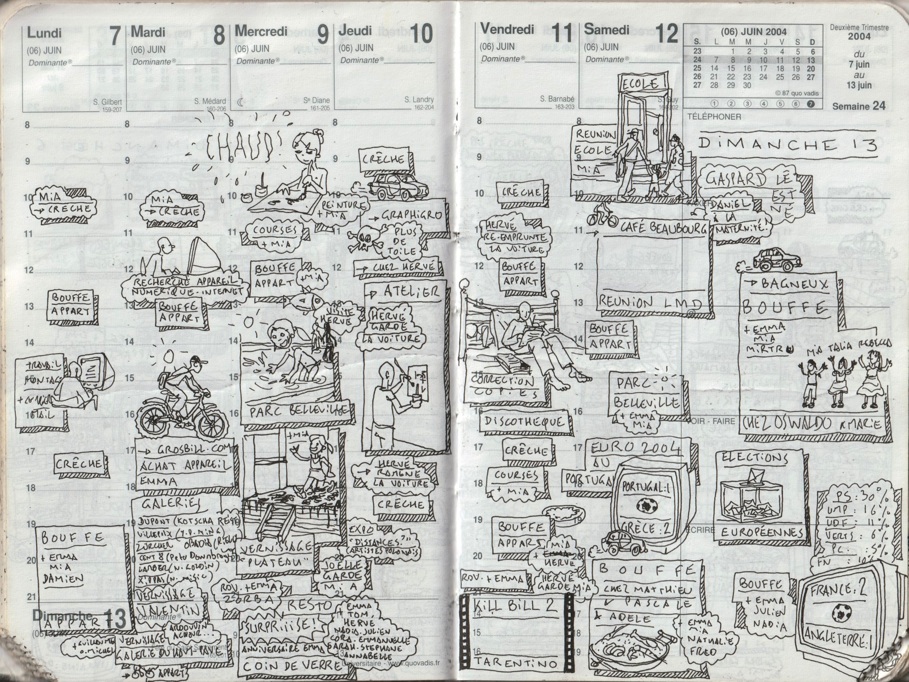 Lundi 7
(06) JUIN
Dominante
S. Gilbert
159-207
Mardi 8
(06) JUIN
Dominante
S. Médard
160-206
Mercredi 9
(06) JUIN
Dominante
Se Diane
161-205
Jeudi 10
(06) JUIN
Dominante
S. Landry
162-204
8
9
10
11
12
13
14
15
16
17
18
19
20
21
MIA
→ CRECHE
BOUFFE
APPART
TRAVAIL
CRÈCHE
BOUFFE
+ EMMA
MIA
DAMIEN
APPART
Dimanche 13
MIA
→ CRECHE
RECHERCHE APPAREIL
NUMERIQUE-INTERNET
BOUFFE
APPART
→ GROSBILL.COM
ACHAT APPAREIL
EMMA
GALERIES
VERNISSAGE
VALENTIN
VERNISSAGE
GALERIE DU HAUT-PAVÉ
APPART
CHAUD!
PEINTURE
+ MIA
COURSES
+ MIA
BOUFFE
APPART
+ MIA
VISITE
HERVÉ
PARC BELLEVILLE
+ MIA
VERNISSAGE
"PLATEAU"
RDV. + EMMA
ZERBA
RESTO
SURPRIIISE!
ANNIVERSAIRE EMMA
COIN DE VERRE
CRÊCHE
→ GRAPHIGRO
PLUS
DE
TOILE
→ CHEZ HERVÉ
→ ATELIER
HERVÉ
GARDE
LA VOITURE
→ HERVÉ
RAMÈNE
LA VOITURE
CRÊCHE
EXPO
"DISTANCES"
JOËLLE
GARDE
MIA
EMMA
+ TOM
HERVÉ
NADIA-JULIEN
CORA-EMMANUELLE
SARAH-STEPHANE
ANNABELLE
Universitaire - www.quovadis.fr
Vendredi 11
(06) JUIN
Dominante
S. Barnabé
163-203
Samedi 12
(06) JUIN
Dominante
(06) JUIN 2004
S. L M M J V S D
23 1 2 3 4 5 6
24 7 8 9 10 11 12 13
25 14 15 16 17 18 19 20
26 21 22 23 24 25 26 27
27 28 29 30
① ② ③ ④ ⑤ ⑥ ⑦
© 87 quo vadis
Deuxième Trimestre
2004
du
7 juin
au
13 juin
Semaine 24
TÉLÉPHONER
CRÈCHE
HERVÉ
RE-EMPRUNTE
LA VOITURE
BOUFFE
APPART
CORRECTION
COPIES
DISCOTHEQUE
CRÈCHE
COURSES
+ MIA
BOUFFE
APPART
+ MIA
+ EMMA
HERVÉ
HERVÉ
GARDE MIA
RDV. + EMMA
KILL BILL 2
TARENTINO
ECOLE
REUNION
ECOLE
MIA
CAFÉ BEAUBOURG
REUNION LMD
BOUFFE
APPART
PARC-
BELLEVILLE
+ EMMA
MIA
EURO 2004
AU
PORTUGAL
PORTUGAL:1
GRÈCE:2
BOUFFE
CHEZ MATHIEU
PASCALE
+ ADELE
+ EMMA
MIA
NATHALIE
FRED
DIMANCHE 13
GASPARD LE
EST
NÉ
→ DANIEL
À LA
MATERNITÉ
→ BAGNEUX
BOUFFE
+ EMMA
MIA
MIRTRU
MIA TALIA REBECCA
CHEZ OSWALDO & MARIE
VOIR - FAIRE
ELECTIONS
EUROPÉENNES
PS: 30%
UMP: 16%
UDF: 11%
VERTS: 6%
PC: 5%
FN: 10%
ÉCRIRE
BOUFFE
+ EMMA
JULIEN
NADIA
FRANCE:2
ANGLETERRE:1